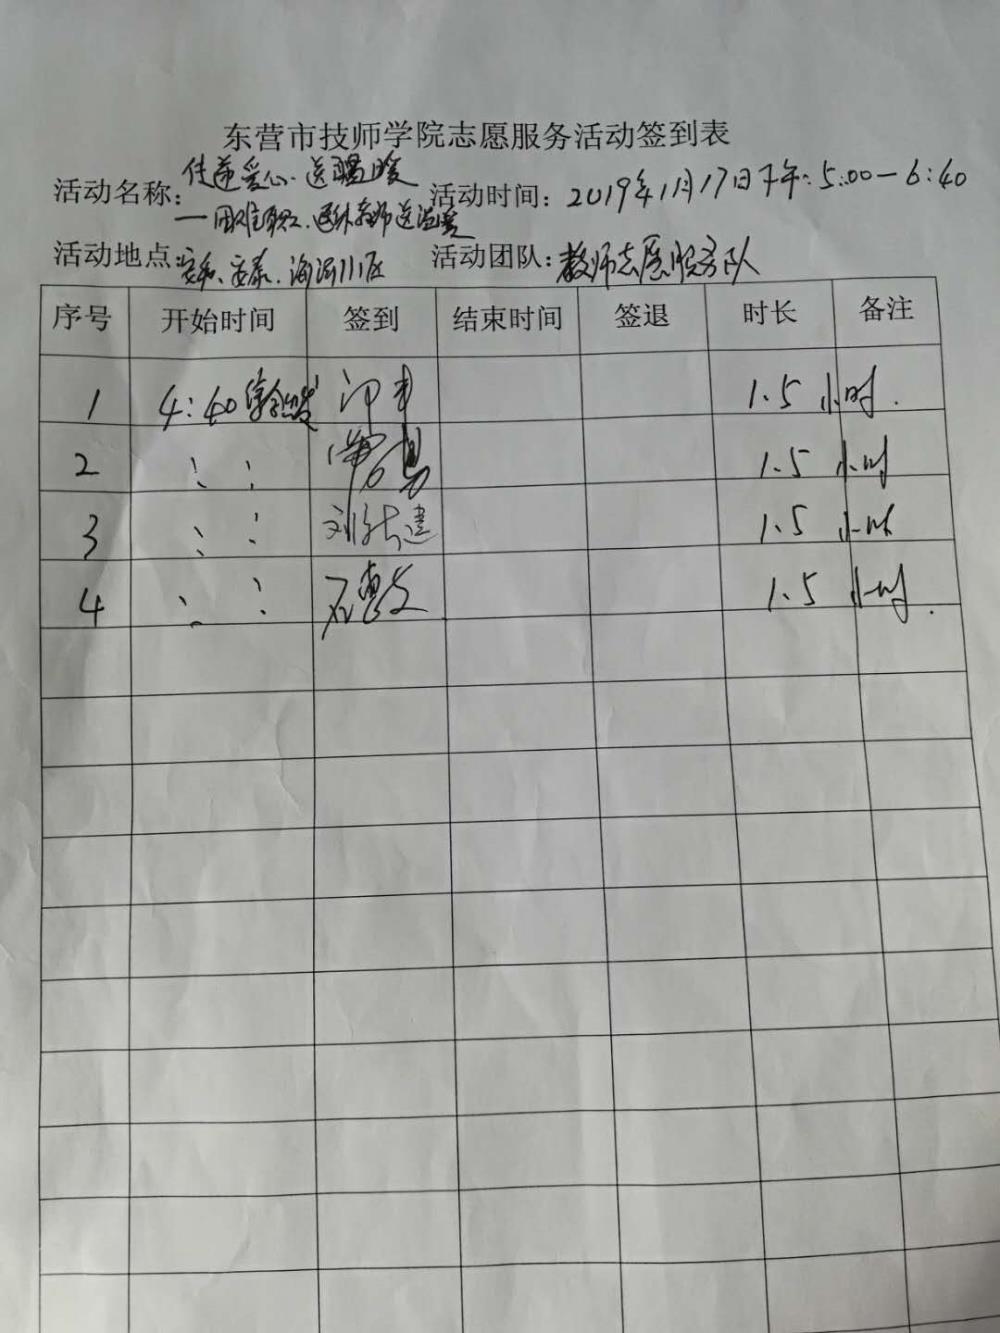 东营市技师学院志愿服务活动签到表
活动名称：传递爱心、送温暖 活动时间：2019年11月17日下午：5:00—6:40
—困难职工、退休教师送温暖
活动地点：安和、安泰、海河小区 活动团队：教师志愿服务队
序号 开始时间 签到 结束时间 签退 时长 备注
1 4:40 1.5 小时.
2 、、 1.5 小时
3 、、 刘 建 1.5 小时
4 、、 石 1.5 小时.